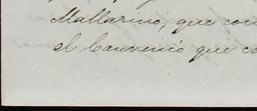 Mallarino, que con
el Convenio que c